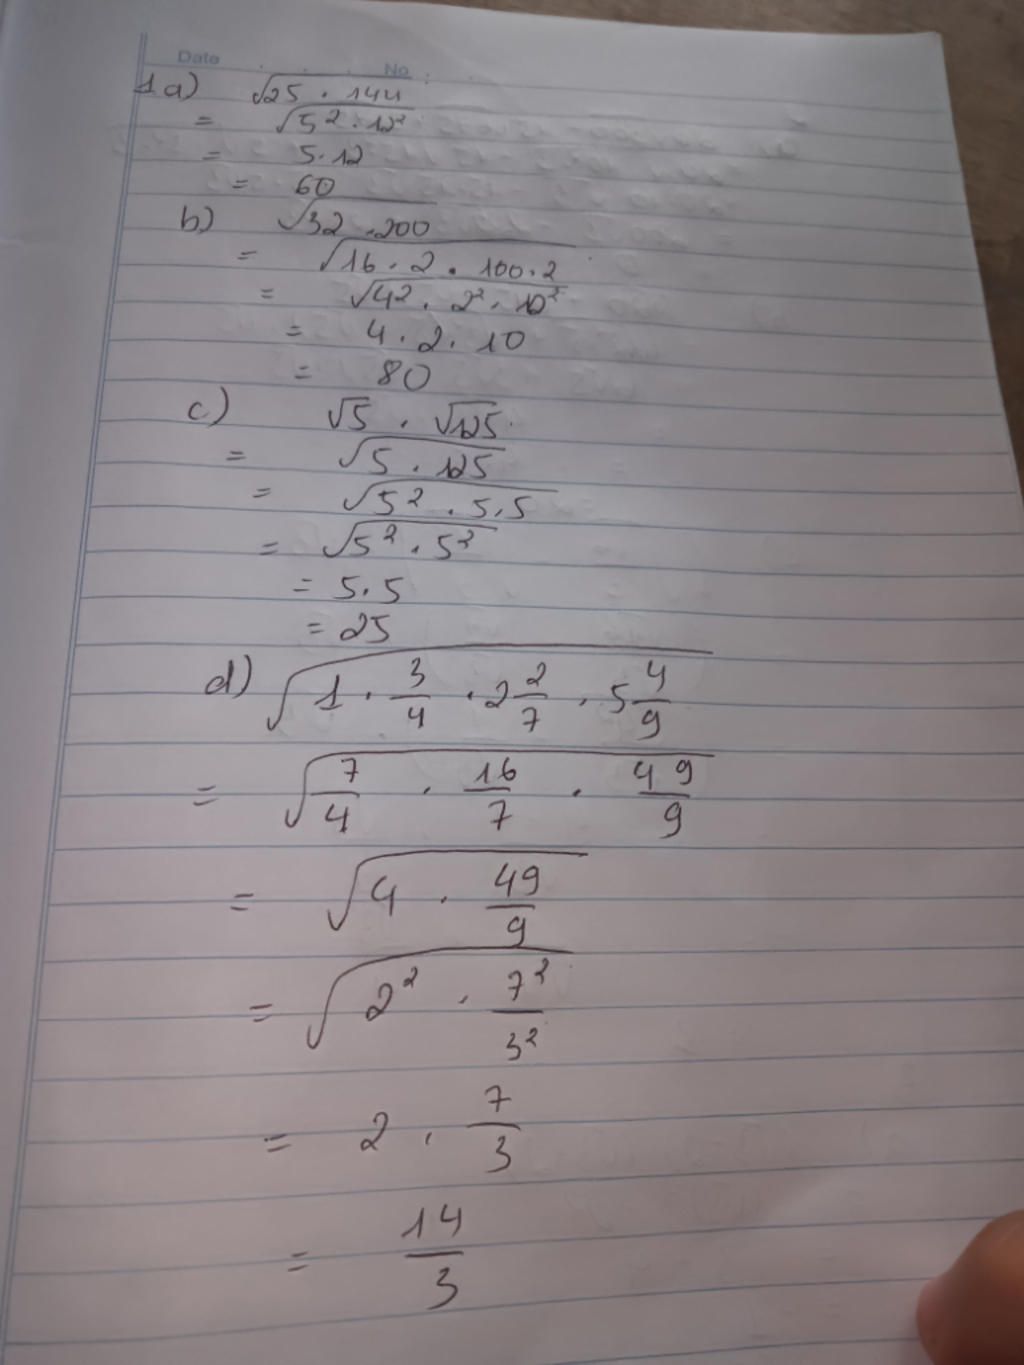 Date No :
1a) √25 . 144
= √5² . 12²
= 5.12
= 60
b) √32 .200
= √16 . 2 . 100.2
= √4² . 2² . 10²
= 4 . 2 . 10
= 80
c) √5 . √125
= √5 . 125
= √5² . 5.5
= √5² . 5²
= 5.5
= 25
d) √1 . 3/4 . 2 2/7 . 5 4/9
= √7/4 . 16/7 . 49/9
= √4 . 49/9
= √2² . 7²/3²
= 2 . 7/3
= 14/3